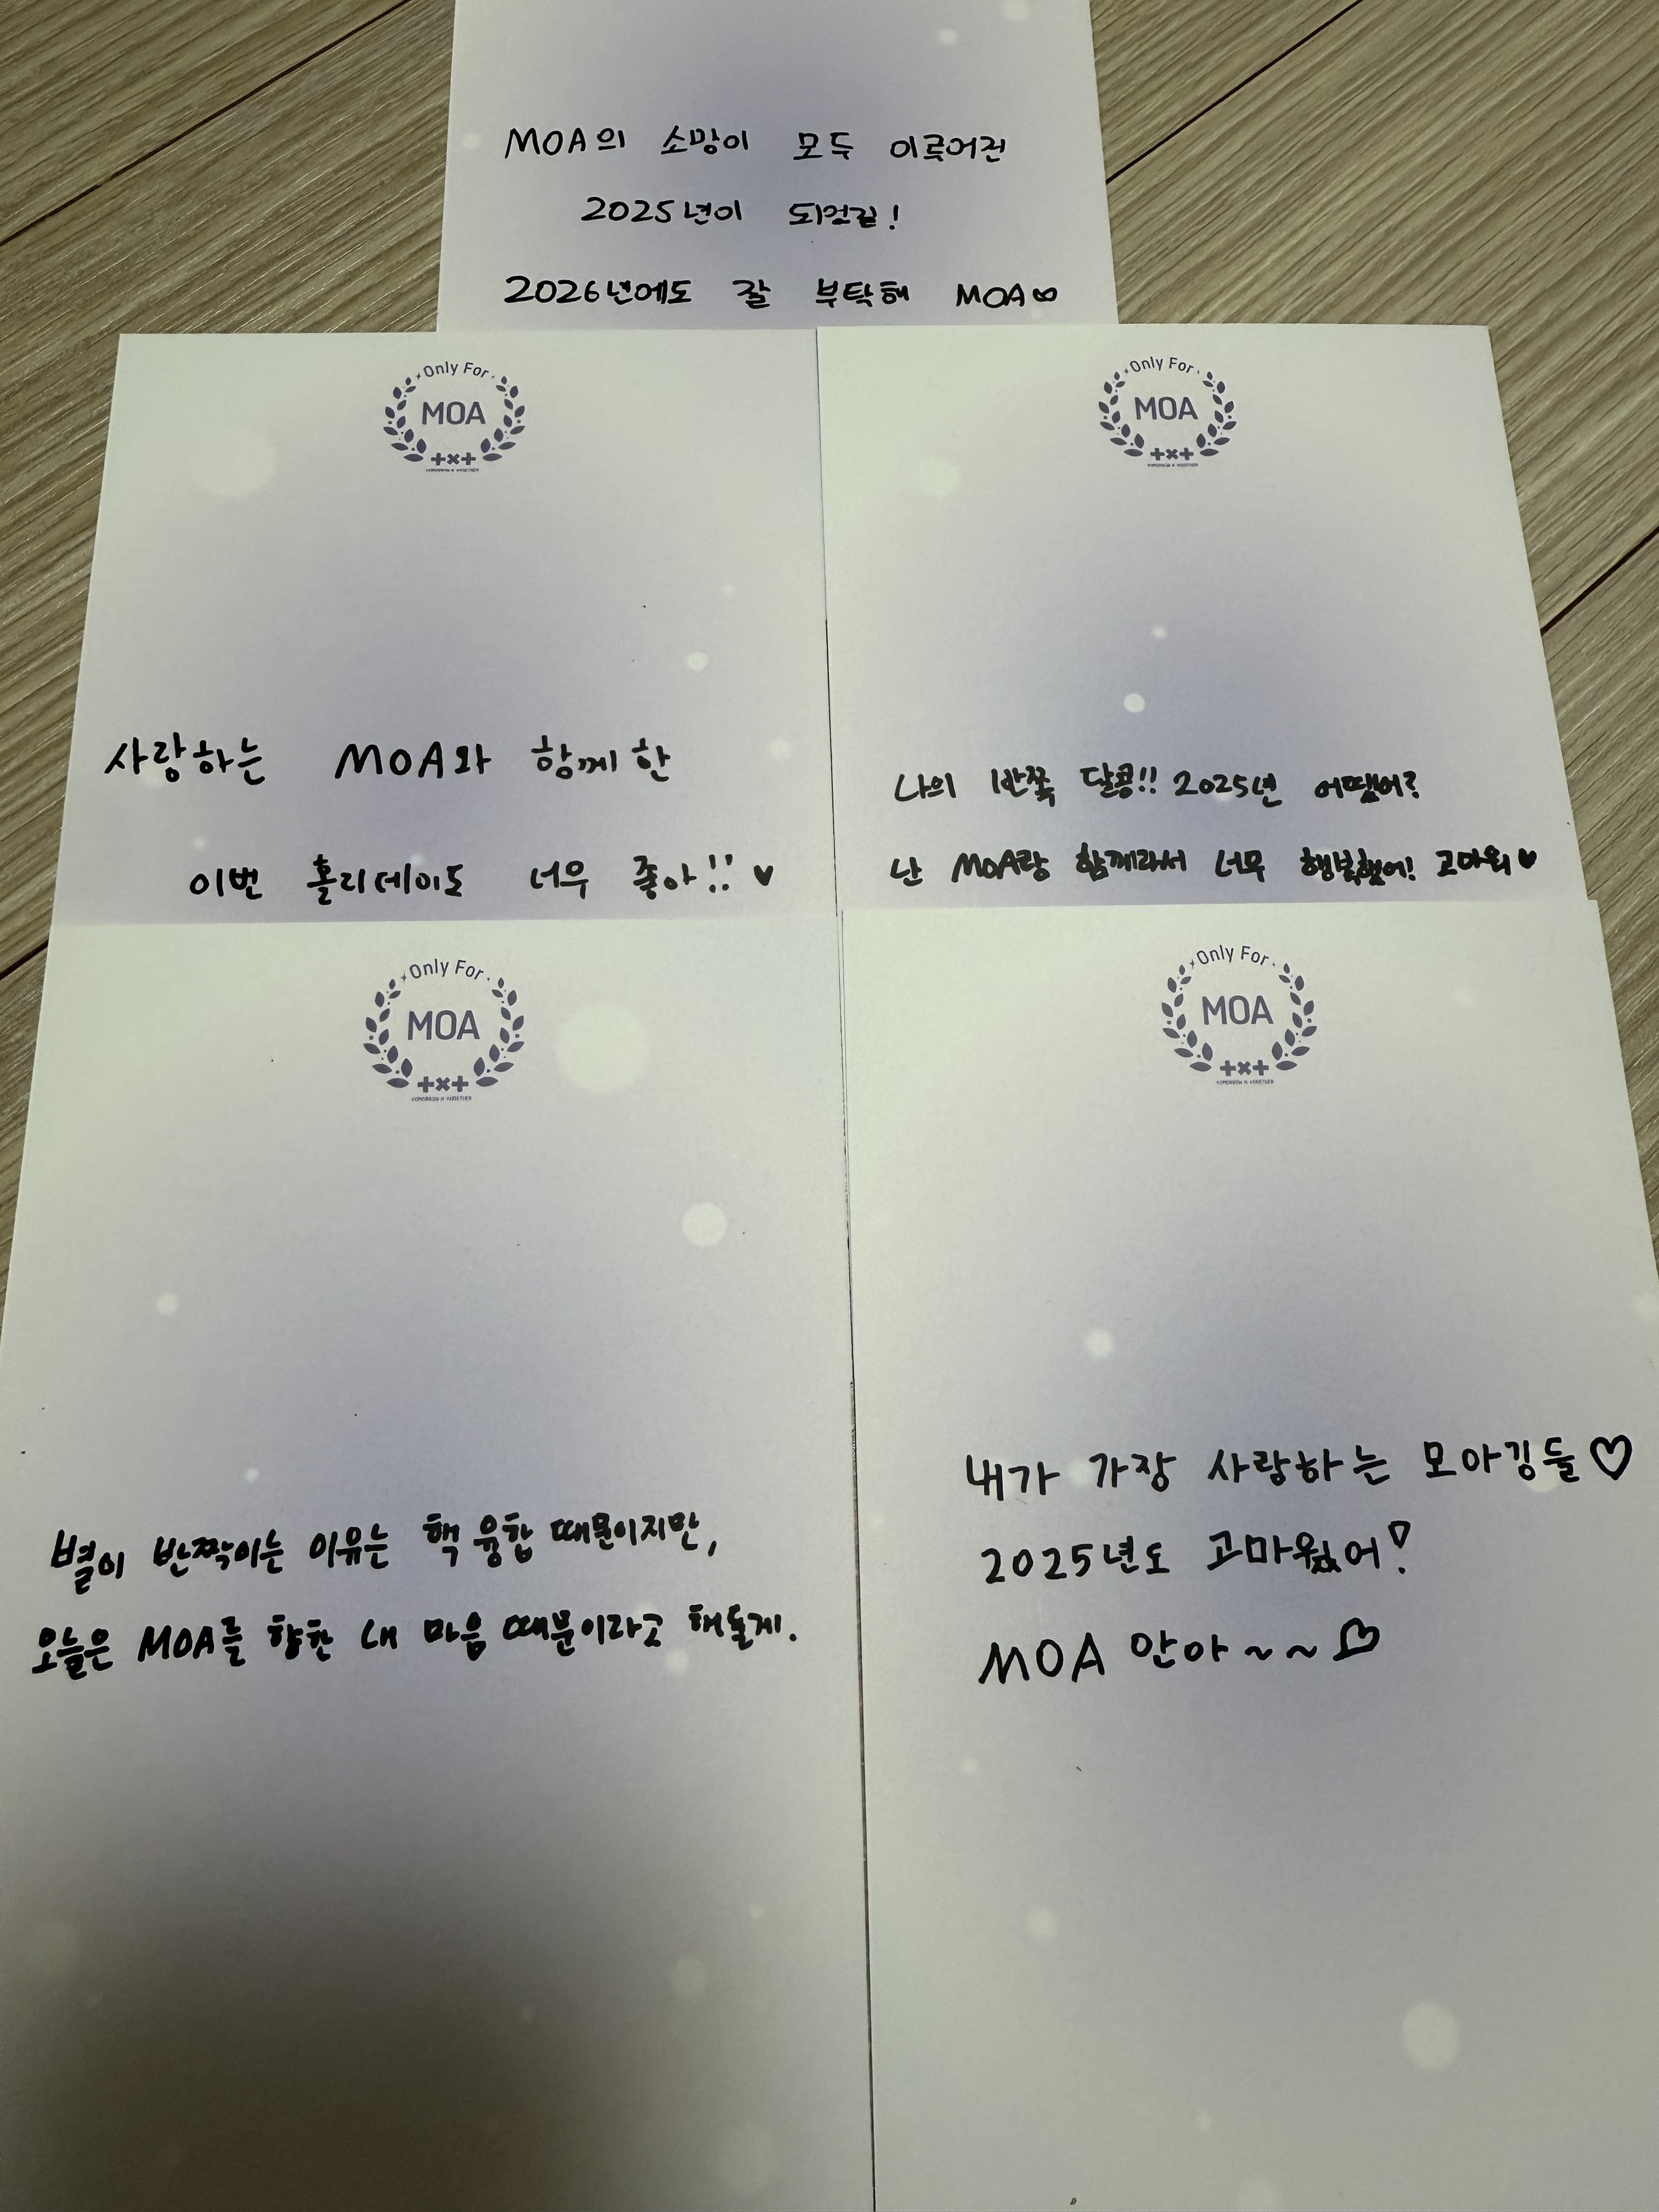 MOA의 소망이 모두 이루어진
2025년이 되었길!
2026년에도 잘 부탁해 MOA♡
Only For
MOA
+×+
TOMORROW X TOGETHER
사랑하는 MOA와 함께한
이번 홀리데이도 너무 좋아!! ♥
Only For
MOA
+×+
TOMORROW X TOGETHER
나의 반쪽 달콩!! 2025년 어땠어?
난 MOA랑 함께라서 너무 행복했어! 고마워♥
Only For
MOA
+×+
TOMORROW X TOGETHER
별이 반짝이는 이유는 핵융합 때문이지만,
오늘은 MOA를 향한 내 마음 때문이라고 해둘게.
Only For
MOA
+×+
TOMORROW X TOGETHER
내가 가장 사랑하는 모아깅들♡
2025년도 고마웠어!
MOA 안아~~♡